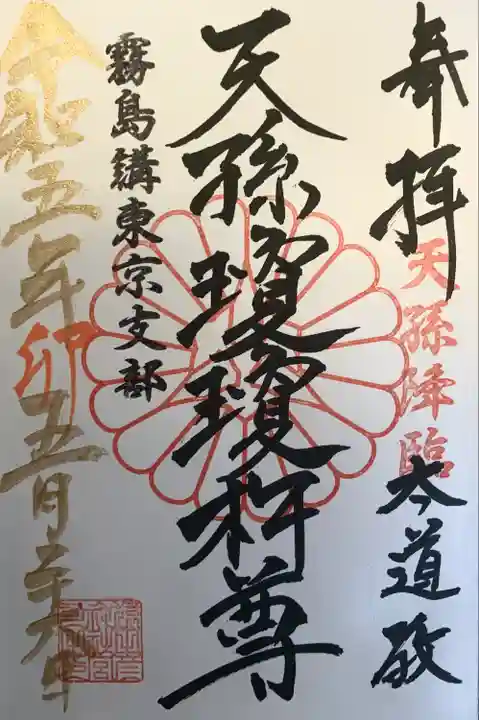 奉拝
天孫降臨
大道敬
天孫瓊瓊杵尊
霧島講東京支部
令和五年卯五月二十六日